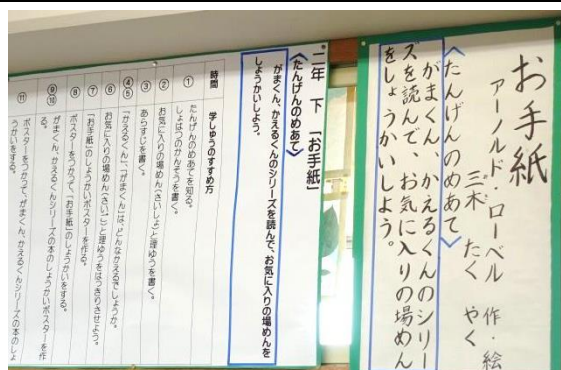 お手紙
アーノルド・ローベル 作・絵
三木 たく やく
〈たんげんのめあて〉
がまくん、かえるくんのシリー
ズを読んで、お気に入りの場めん
をしょうかいしよう。
二年 下 「お手紙」
〈たんげんのめあて〉
がまくん、かえるくんのシリーズを読んで、お気に入りの場めんを
しょうかいしよう。
時間 学しゅうのすすめ方
① たんげんのめあてを知る。
しょはつのかんそうを書く。
② お気に入りの場めん(さいしょ)と理ゆうを書く。
③ あらすじを書く。
④⑤ 「かえるくん」「がまくん」は、どんなかえるでしょうか。
⑥ お気に入りの場めん(さいご)と理ゆうをはっきりさせよう。
⑦ 「お手紙」のしょうかいポスターを作る。
⑧ ポスターをつかって、「お手紙」のしょうかいをする。
⑨⑩ がまくん、かえるくんシリーズの本のしょうかいポスターを作
る。
⑪ ポスターをつかって、がまくん、かえるくんシリーズの本のしょ
うかいをする。